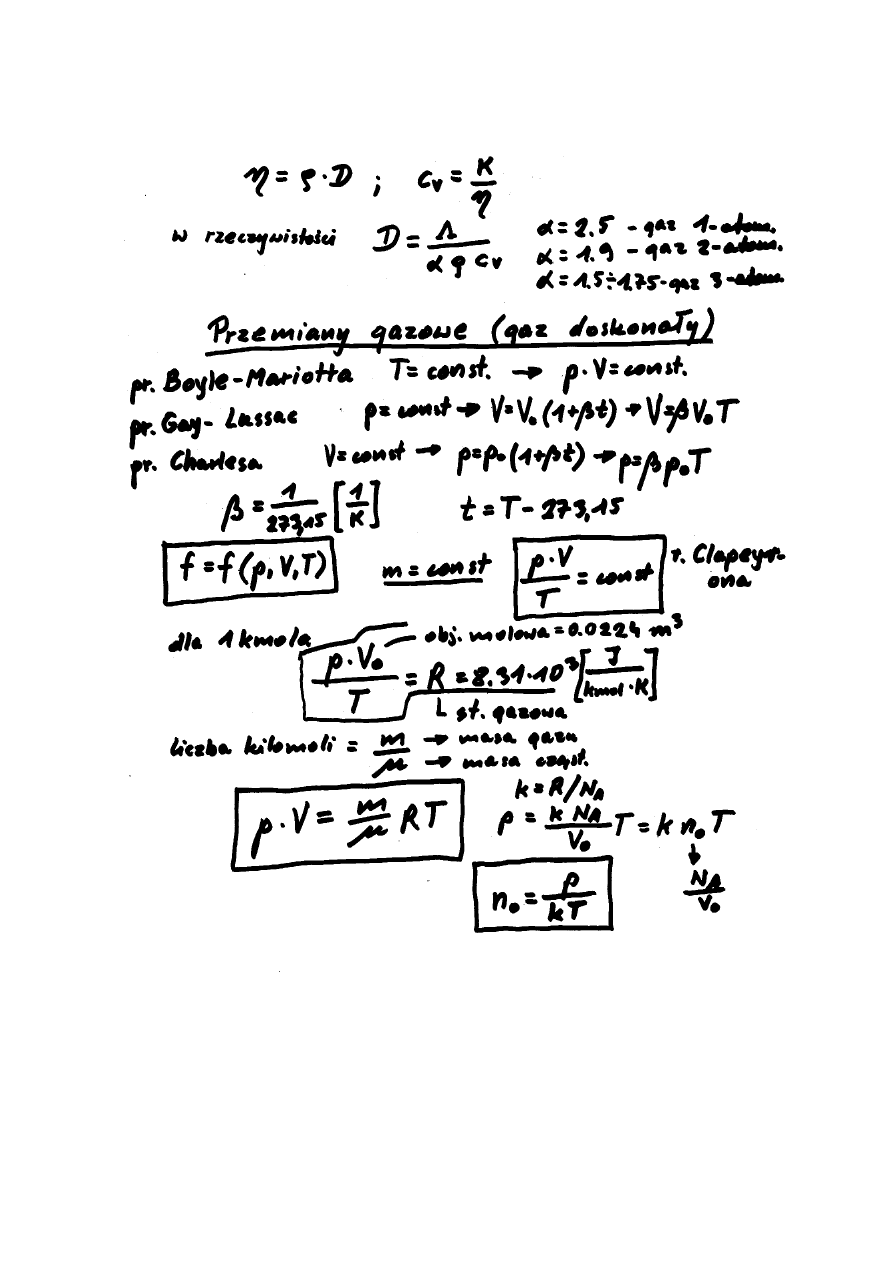 η = ρ · D ; c_v = K/η
w rzeczywistości D = Λ/(α ρ c_v) α = 2.5 - gaz 1-atom.
α = 1.9 - gaz 2-atom.
α = 1.5÷1.75 - gaz 3-atom.
Przemiany gazowe (gaz doskonały)
pr. Boyle-Mariotta T = const. → p · V = const.
pr. Gay-Lussac p = const → V = V₀ (1+βt) → V = β V₀ T
pr. Charlesa V = const → p = p₀ (1+βt) → p = β p₀ T
β = 1/273,15 [1/K] t = T - 273,15
f = f (p, V, T) m = const p·V/T = const r. Clapeyrona
dla 1 kmola obj. molowa = 0.0224 m³
p·V₀/T = R = 8.31·10³ [J/kmol·K]
st. gazowa
liczba kilomoli = m/μ → masa gazu
→ masa cząst.
k = R/N_A
p · V = m/μ RT p = k N_A/V₀ T = k n₀ T
n₀ = p/kT N_A/V₀